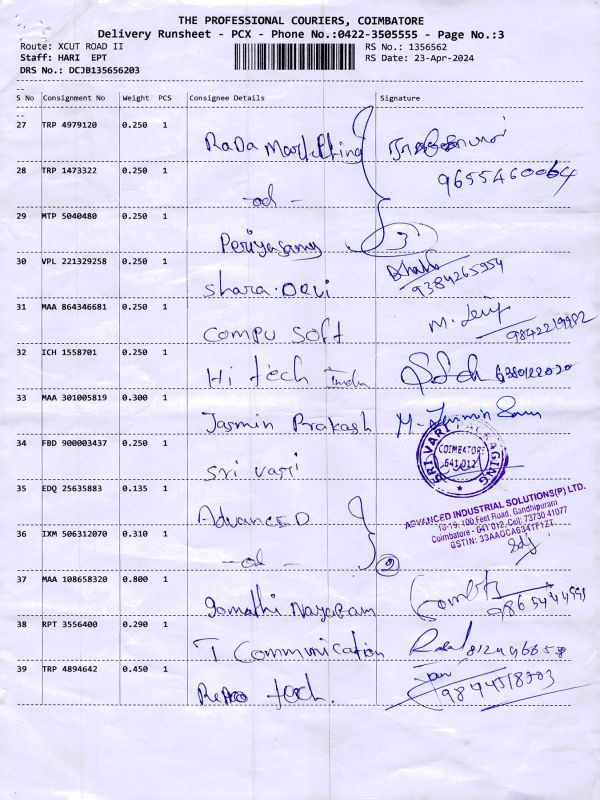 THE PROFESSIONAL COURIERS, COIMBATORE
Delivery Runsheet - PCX - Phone No.:0422-3505555 - Page No.:3
Route: XCUT ROAD II RS No.: 1356562
Staff: HARI EPT RS Date: 23-Apr-2024
DRS No.: DCJB135656203
S No Consignment No Weight PCS Consignee Details Signature
27 TRP 4979120 0.250 1 RaDa Marketting
28 TRP 1473322 0.250 1 - od - 9655460064
29 MTP 5040480 0.250 1 Periyasamy 3
30 VPL 221329258 0.250 1 shara.Devi 9384265954
31 MAA 864346681 0.250 1 Compu Soft 9842219982
32 ICH 1558701 0.250 1 Hi tech India 6380122020
33 MAA 301005819 0.300 1 Jasmin Prakash
34 FBD 900003437 0.250 1 Sri vari
SRI VARI PACKAGING
COIMBATORE
641 012
35 EDQ 25635883 0.135 1 Advanced
ADVANCED INDUSTRIAL SOLUTIONS(P) LTD.
10-19, 100 Feet Road, Gandhipuram
Coimbatore - 641 012. Cell: 73730 41077
GSTIN: 33AAOCA6341F1ZT
36 IXM 506312070 0.310 1 - od - 2
37 MAA 108658320 0.800 1 gomathi Nayagam
38 RPT 3556400 0.290 1 T Communication
39 TRP 4894642 0.450 1 tech.